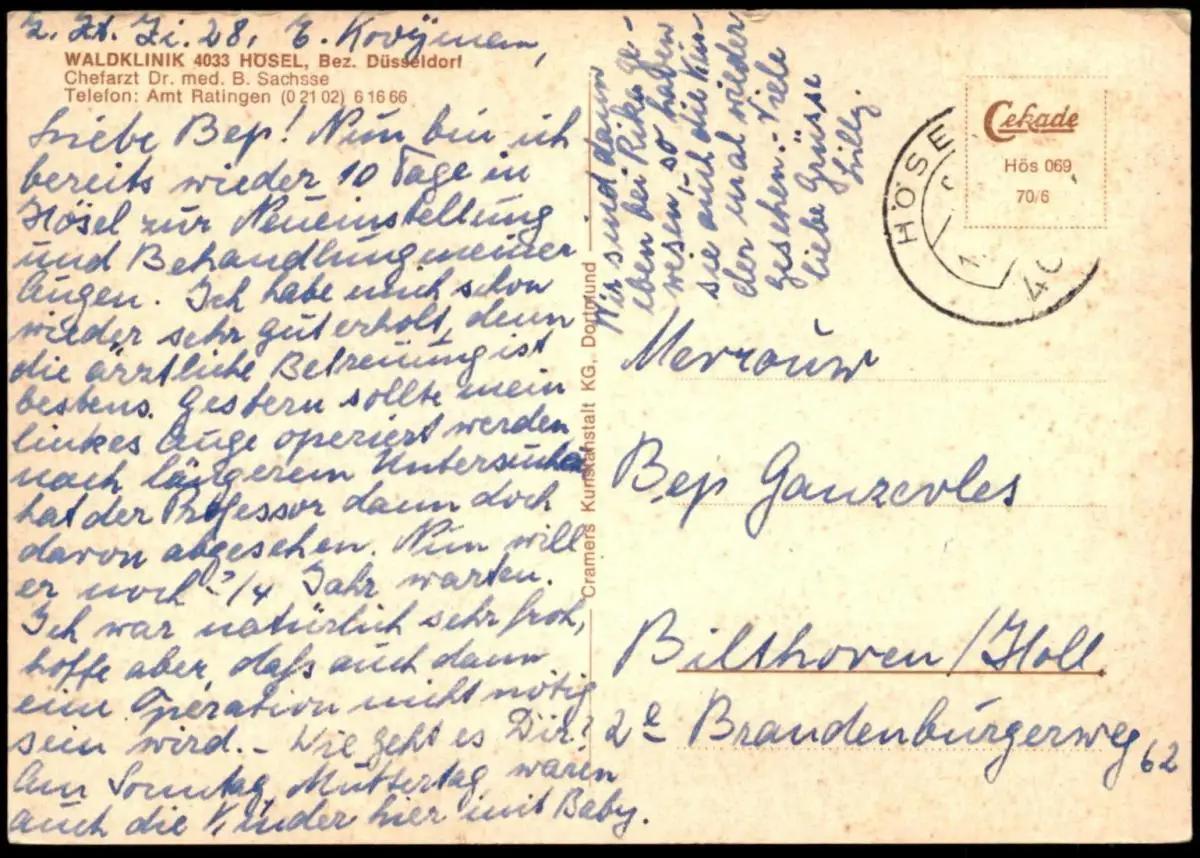 Z. Zt. Zi. 28, E. Kooijman,
WALDKLINIK 4033 HÖSEL, Bez. Düsseldorf
Chefarzt Dr. med. B. Sachsse
Telefon: Amt Ratingen (0 21 02) 6 16 66
Liebe Bep! Nun bin ich
bereits wieder 10 Tage in
Hösel zur Neueinstellung
und Behandlung meiner
Augen. Ich habe mich schon
wieder sehr gut erholt, denn
die ärztliche Betreuung ist
bestens. Gestern sollte mein
linkes Auge operiert werden
nach längerem Untersuchen
hat der Professor dann doch
davon abgesehen. Nun will
er noch /4 Jahr warten.
Ich war natürlich sehr froh,
hoffe aber, daß auch dann
eine Operation nicht nötig
sein wird. – Wie geht es Dir?
Am Sonntag, Muttertag, waren
auch die Kinder hier mit Baby.
Wir sind dann
eben bei Rika ge-
wesen, so haben
sie auch die Kin-
der mal wieder
gesehen. – Viele
liebe Grüsse
Lilly.
Cramers Kunstanstalt KG, Dortmund
Cekade
Hös 069
70/6
HÖSE
Mevrouw
Bep Ganzevles
Bilthoven/Holl
2e Brandenburgerweg 62